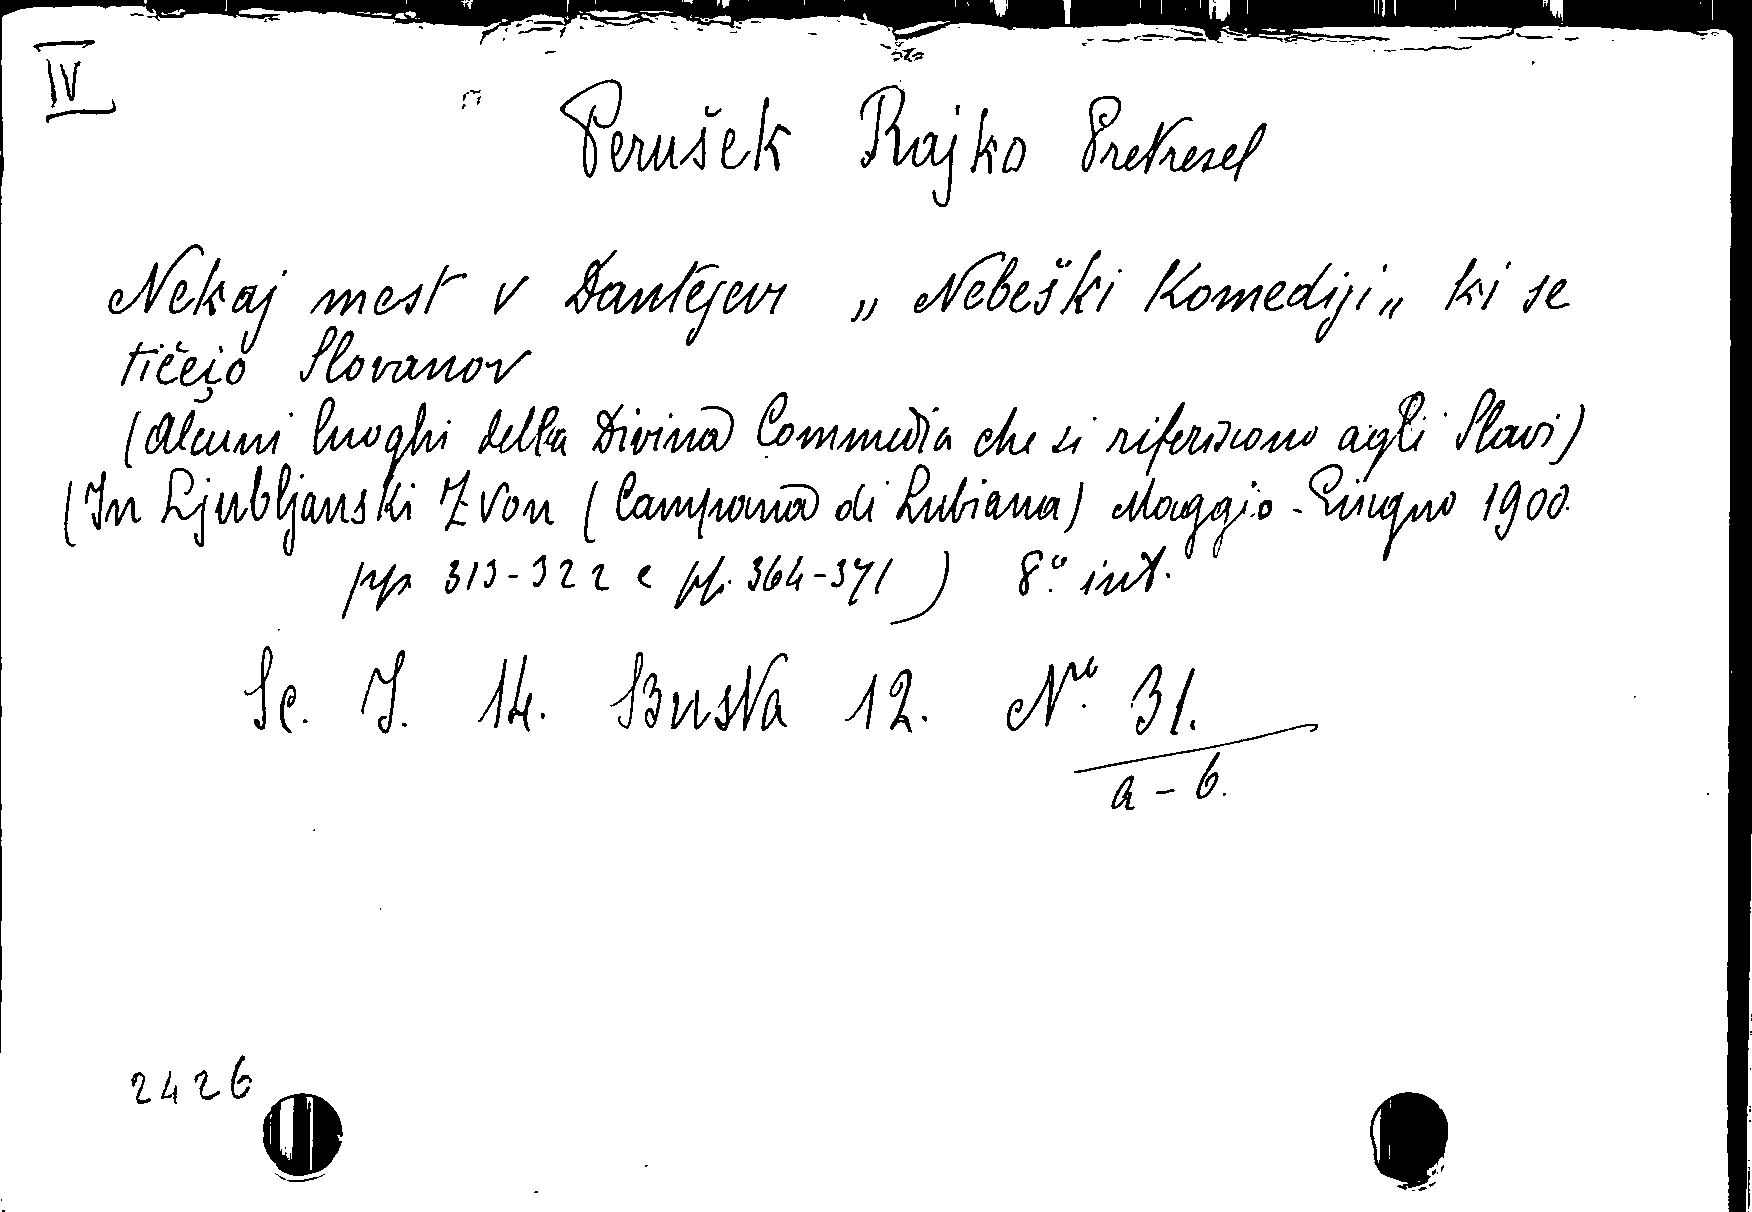 IV
Perušek Rajko Pretresel
Nekaj mest v Dantejevi „ Nebeški Komediji„ ki se
tičejo Slovanov
(Alcuni luoghi della Divina Commedia che si riferiscono agli Slavi)
(In Ljubljanski Zvon (Campana di Lubiana) Maggio-Giugno 1900.
pp. 313-322 e pp. 364-371) 8.º int.
Sc. I. 14. Busta 12. Nº. 31.
a-b.
2426